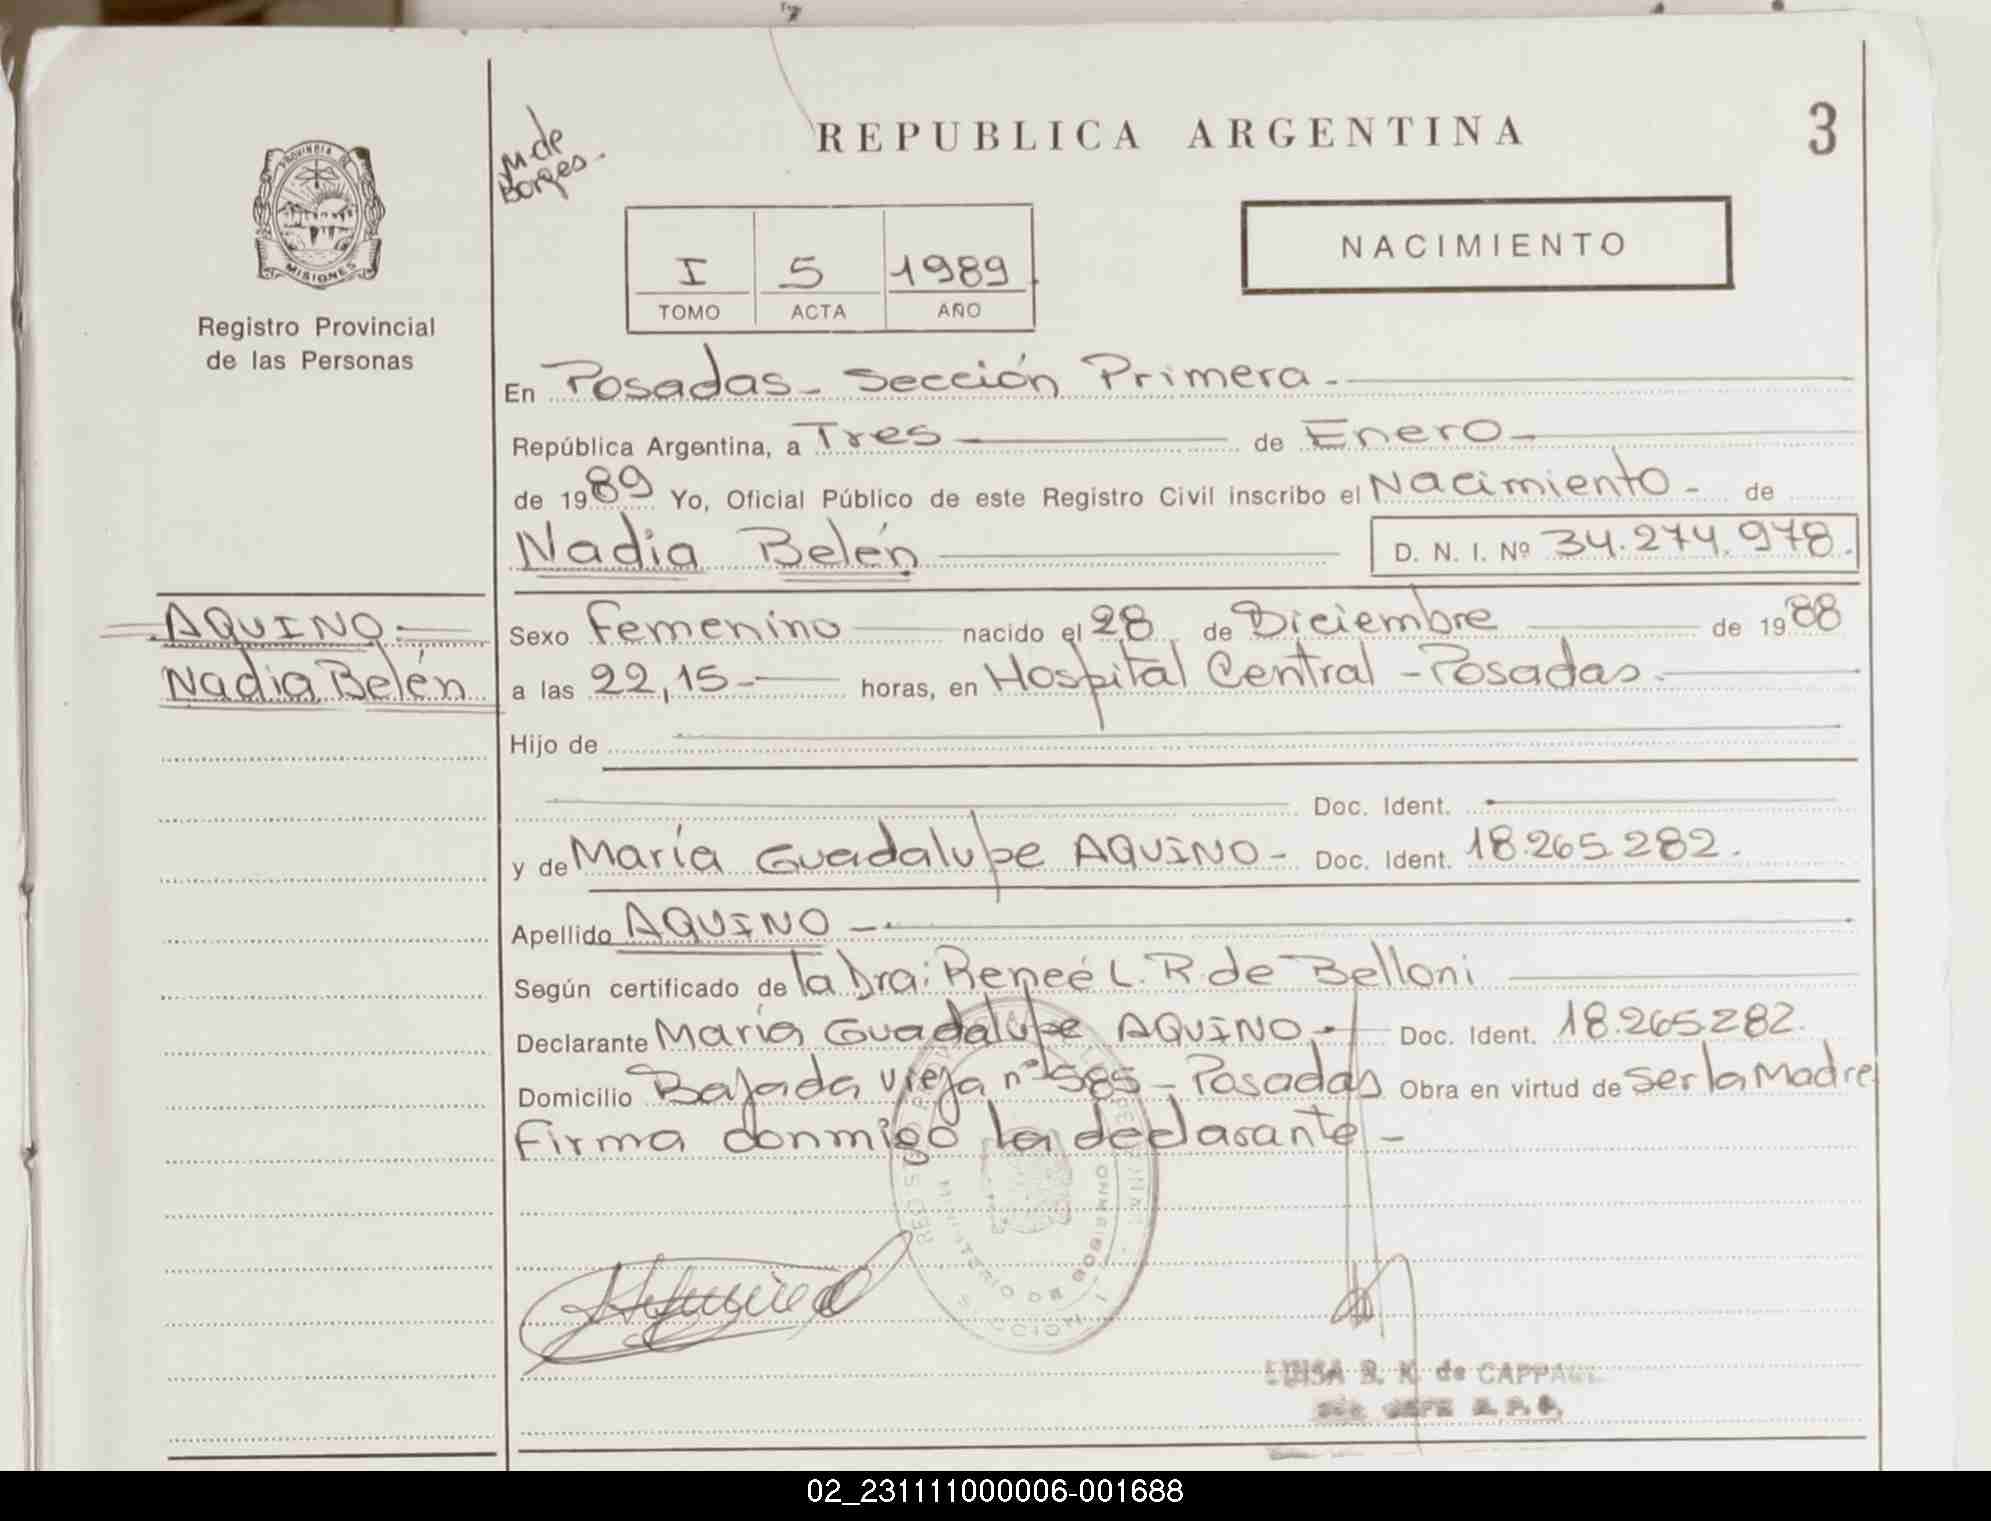 REPUBLICA ARGENTINA
3
M. de
Borges.
PROVINCIA DE
MISIONES
Registro Provincial
de las Personas
I 5 1989
TOMO ACTA AÑO
NACIMIENTO
En Posadas - Sección Primera.-
República Argentina, a Tres de Enero-
de 1989 Yo, Oficial Público de este Registro Civil inscribo el Nacimiento - de
Nadia Belén D. N. I. Nº 34.274.978.
AQUINO
Nadia Belén
Sexo Femenino nacido el 28 de Diciembre de 1988
a las 22,15- horas, en Hospital Central - Posadas.
Hijo de
Doc. Ident.
y de María Guadalupe AQUINO - Doc. Ident. 18.265.282.
Apellido AQUINO -
Según certificado de la Dra: Reneé L. R. de Belloni
Declarante María Guadalupe AQUINO - Doc. Ident. 18.265.282.
Domicilio Bajada vieja nº 585 - Posadas Obra en virtud de ser la Madre
Firma conmigo la declarante -
MINISTERIO DE GOBIERNO
LUISA B. K. de
02_231111000006-001688